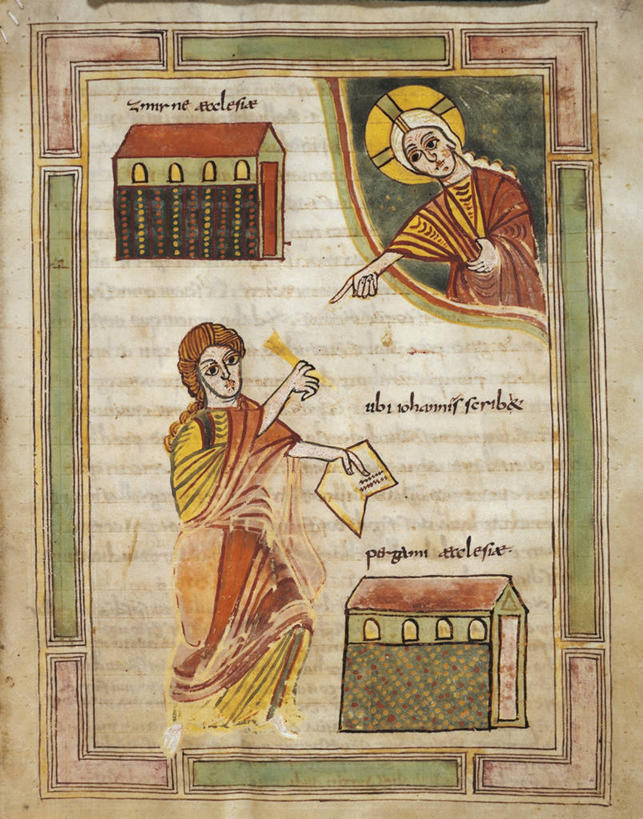 zmirne æcclesiæ
ubi iohannis scribæ
pergami æcclesiæ.